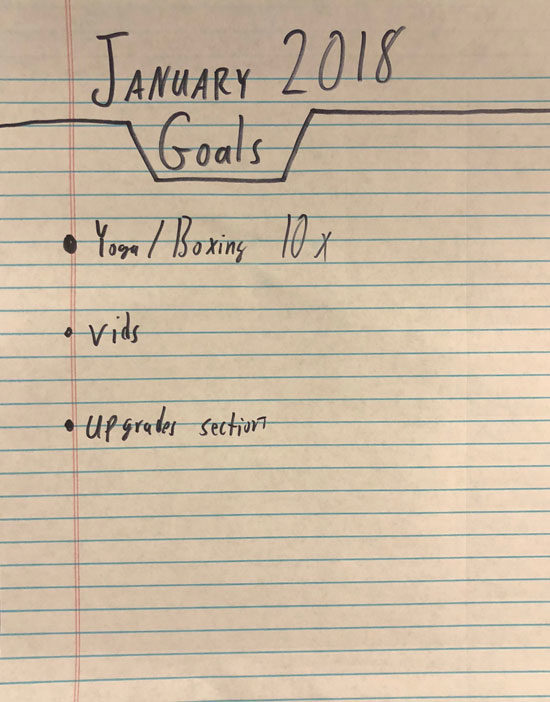 JANUARY 2018
Goals
• Yoga / Boxing 10 x
• Vids
• upgrades section